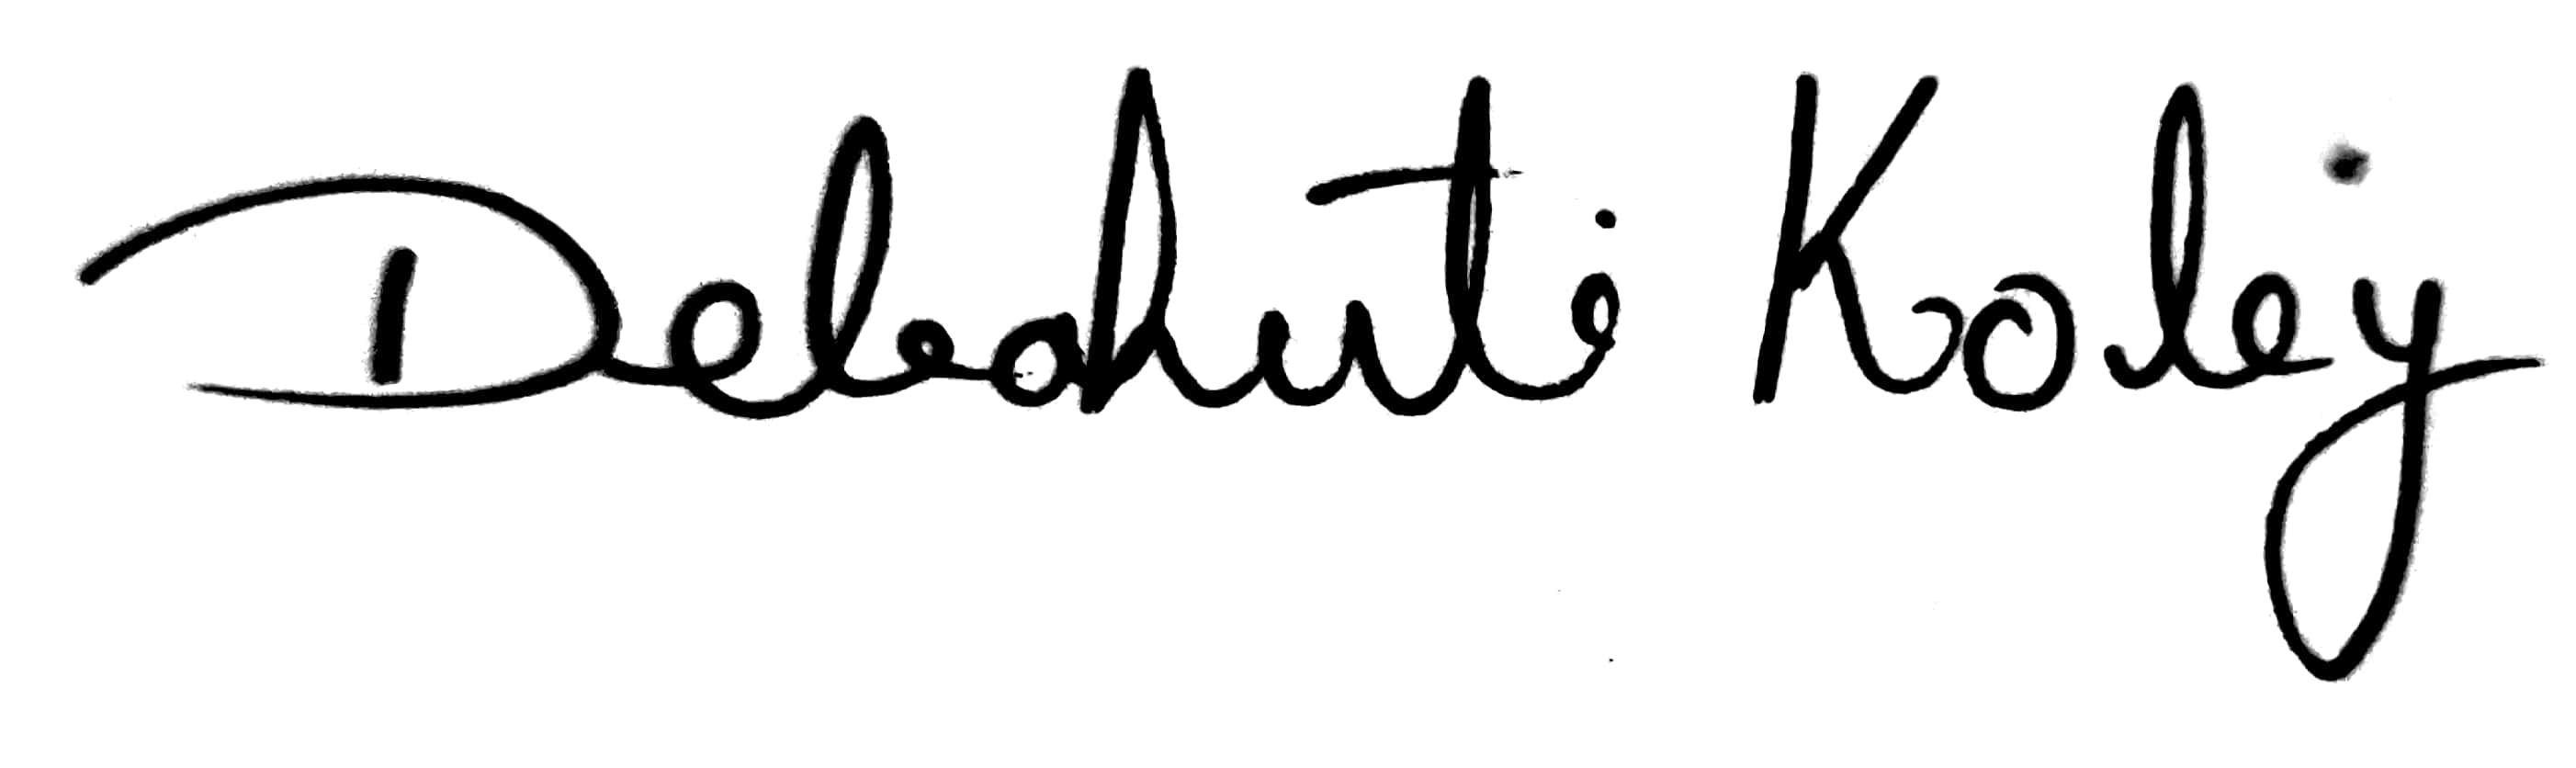 Debahuti Koley